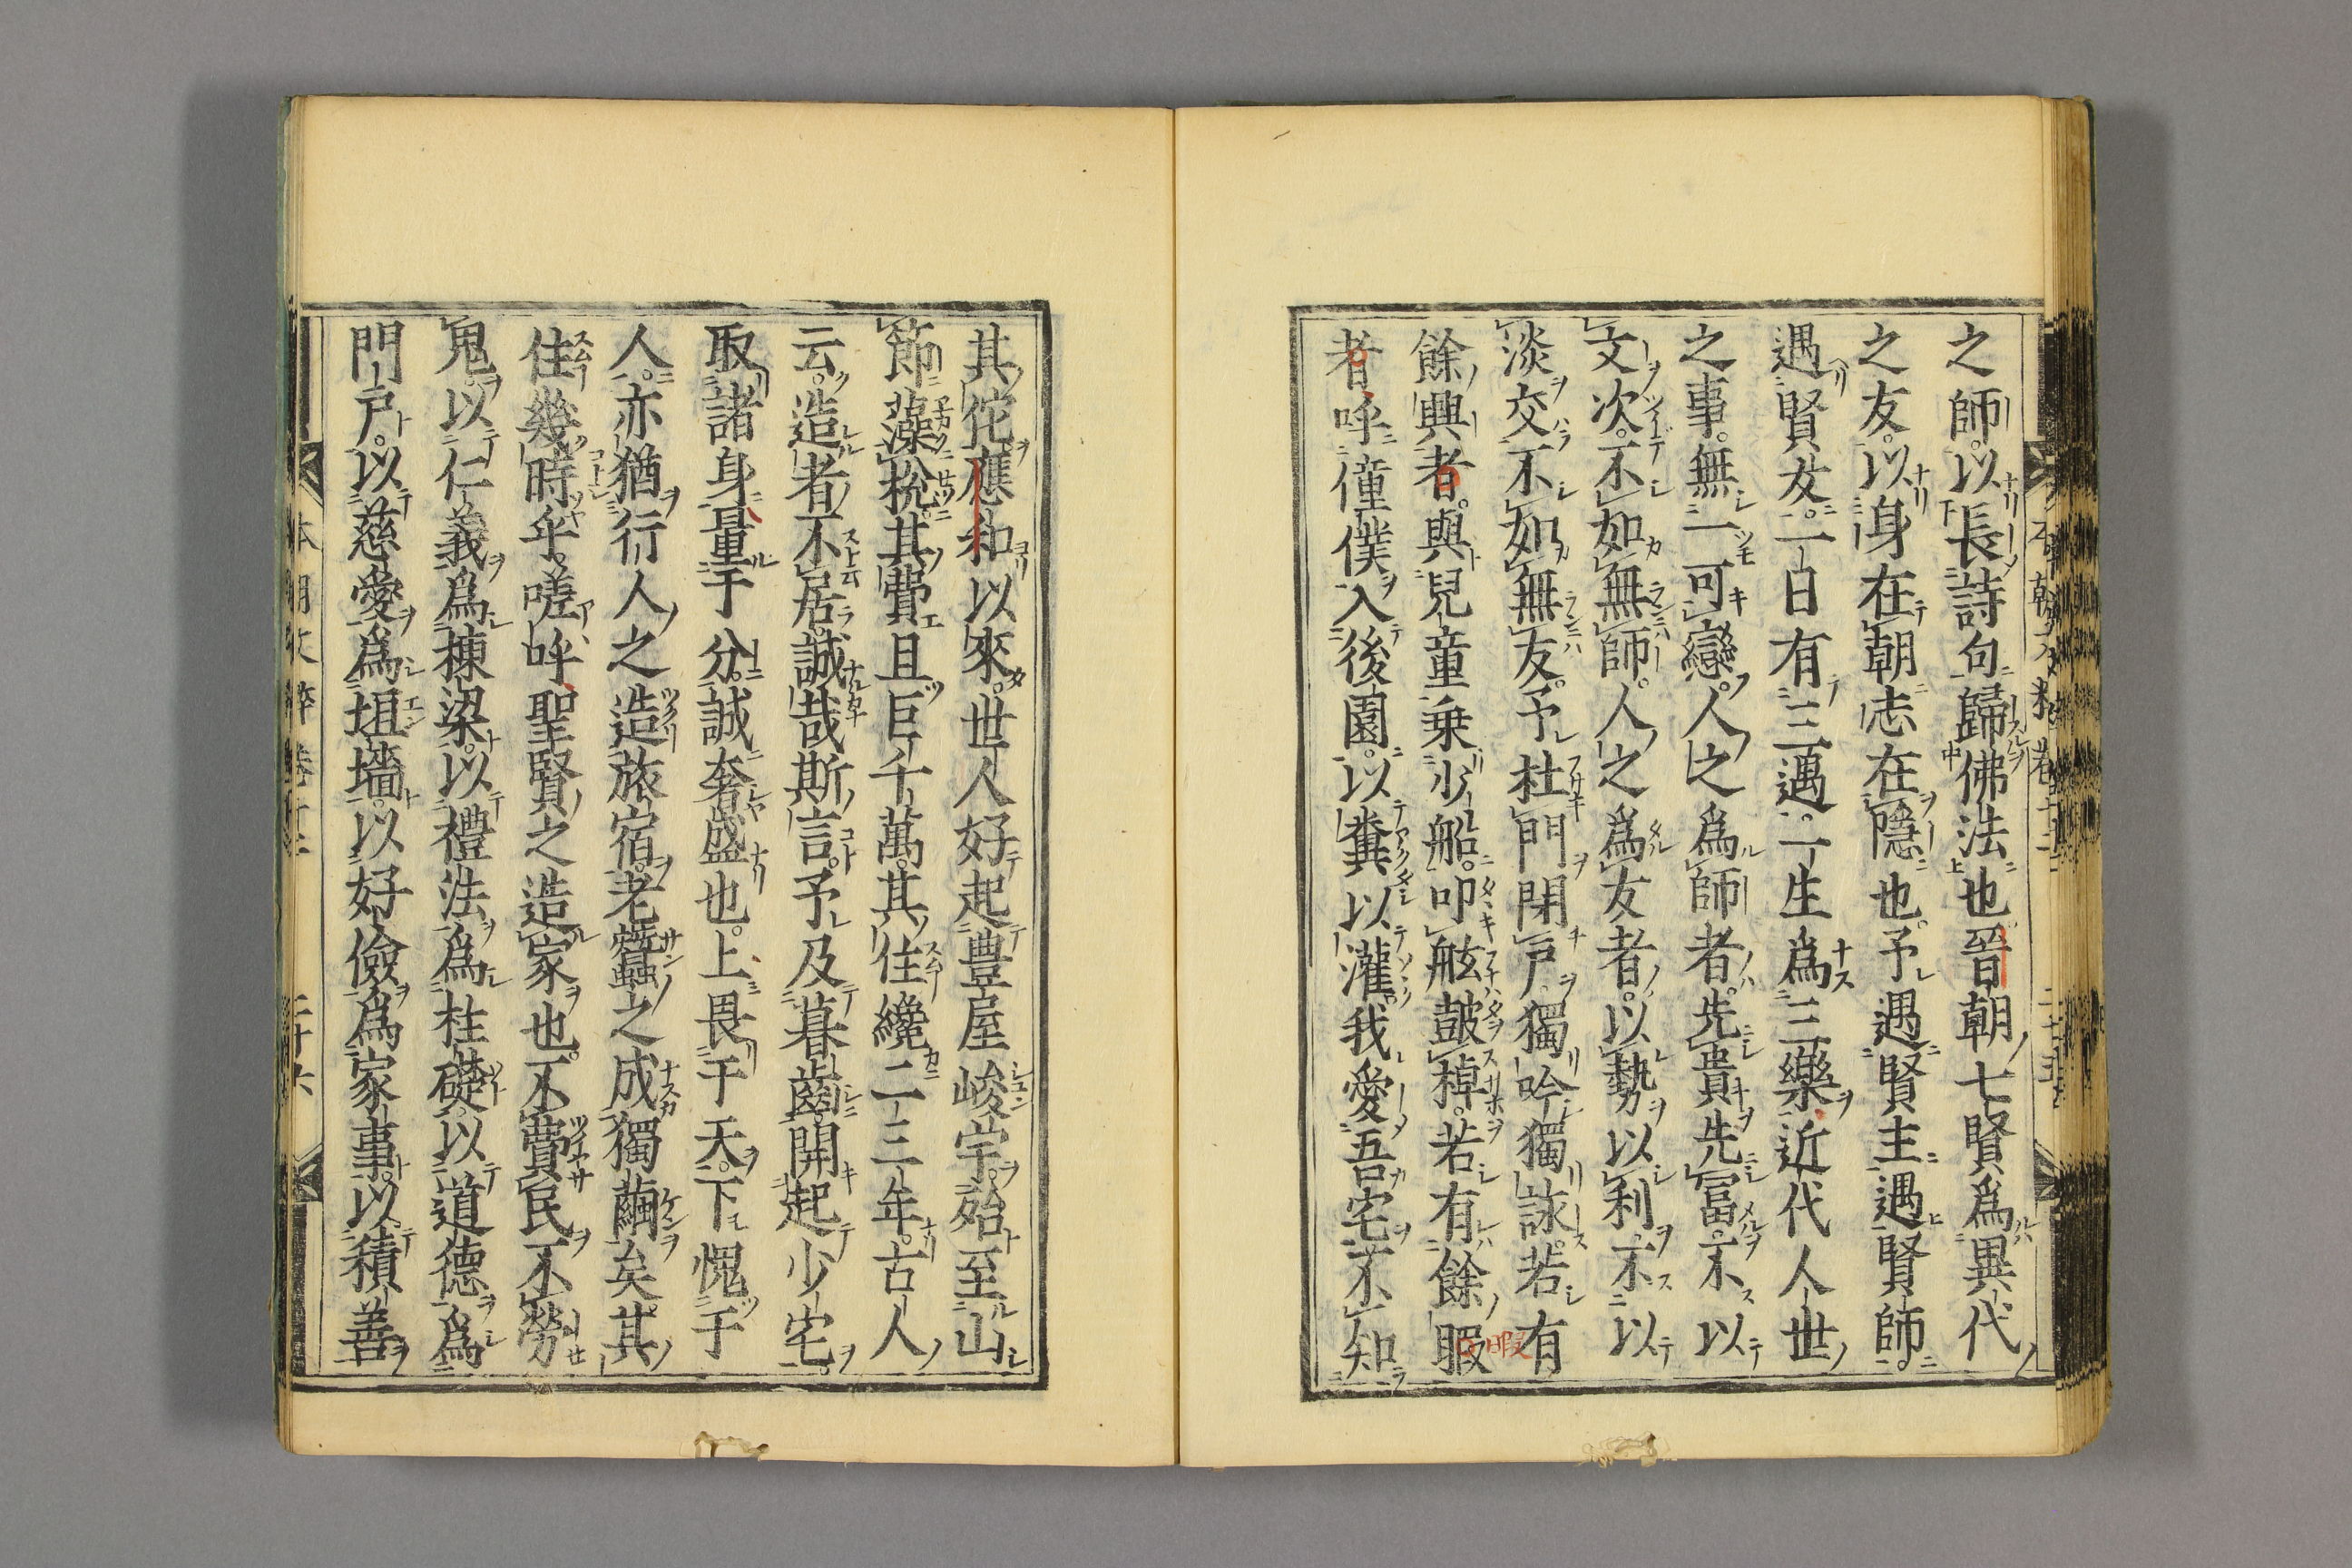 之師。以長詩句歸佛法也。晉朝七賢爲異代
之友。以身在朝志在隱也。予遇賢主遇賢師。
遇賢友。一日有三遇。一生爲三樂。近代人世
之事。無一可戀。人之爲師者。先貴先富。不以
文次。不如無師。人之爲友者。以勢以利。不以
淡交。不如無友。予杜門閉戶。獨吟獨詠。若有
餘興者。與兒童乗少船。叩舷皷棹。若有餘睱
者。呼僮僕入後園。以糞以灌。我愛吾宅。不知
暇
本朝文粹 卷十二
其佗。應和以來。世人好起豊屋峻宇。殆至山
節藻梲。其費且巨千萬。其住纔二三年。古人
云。造者不居。誠哉斯言。予及暮齒。開起少宅。
取諸身量于分。誠奢盛也。上畏于天。下愧于
人。亦猶行人之造旅宿。老蠶之成獨繭矣。其
住幾時乎。嗟呼聖賢之造家也。不費民不勞
鬼。以仁義爲棟梁。以禮法爲柱礎。以道德爲
門戶。以慈愛爲垣墻。以好儉爲家事。以積善
本朝文粹 卷十二 二十六